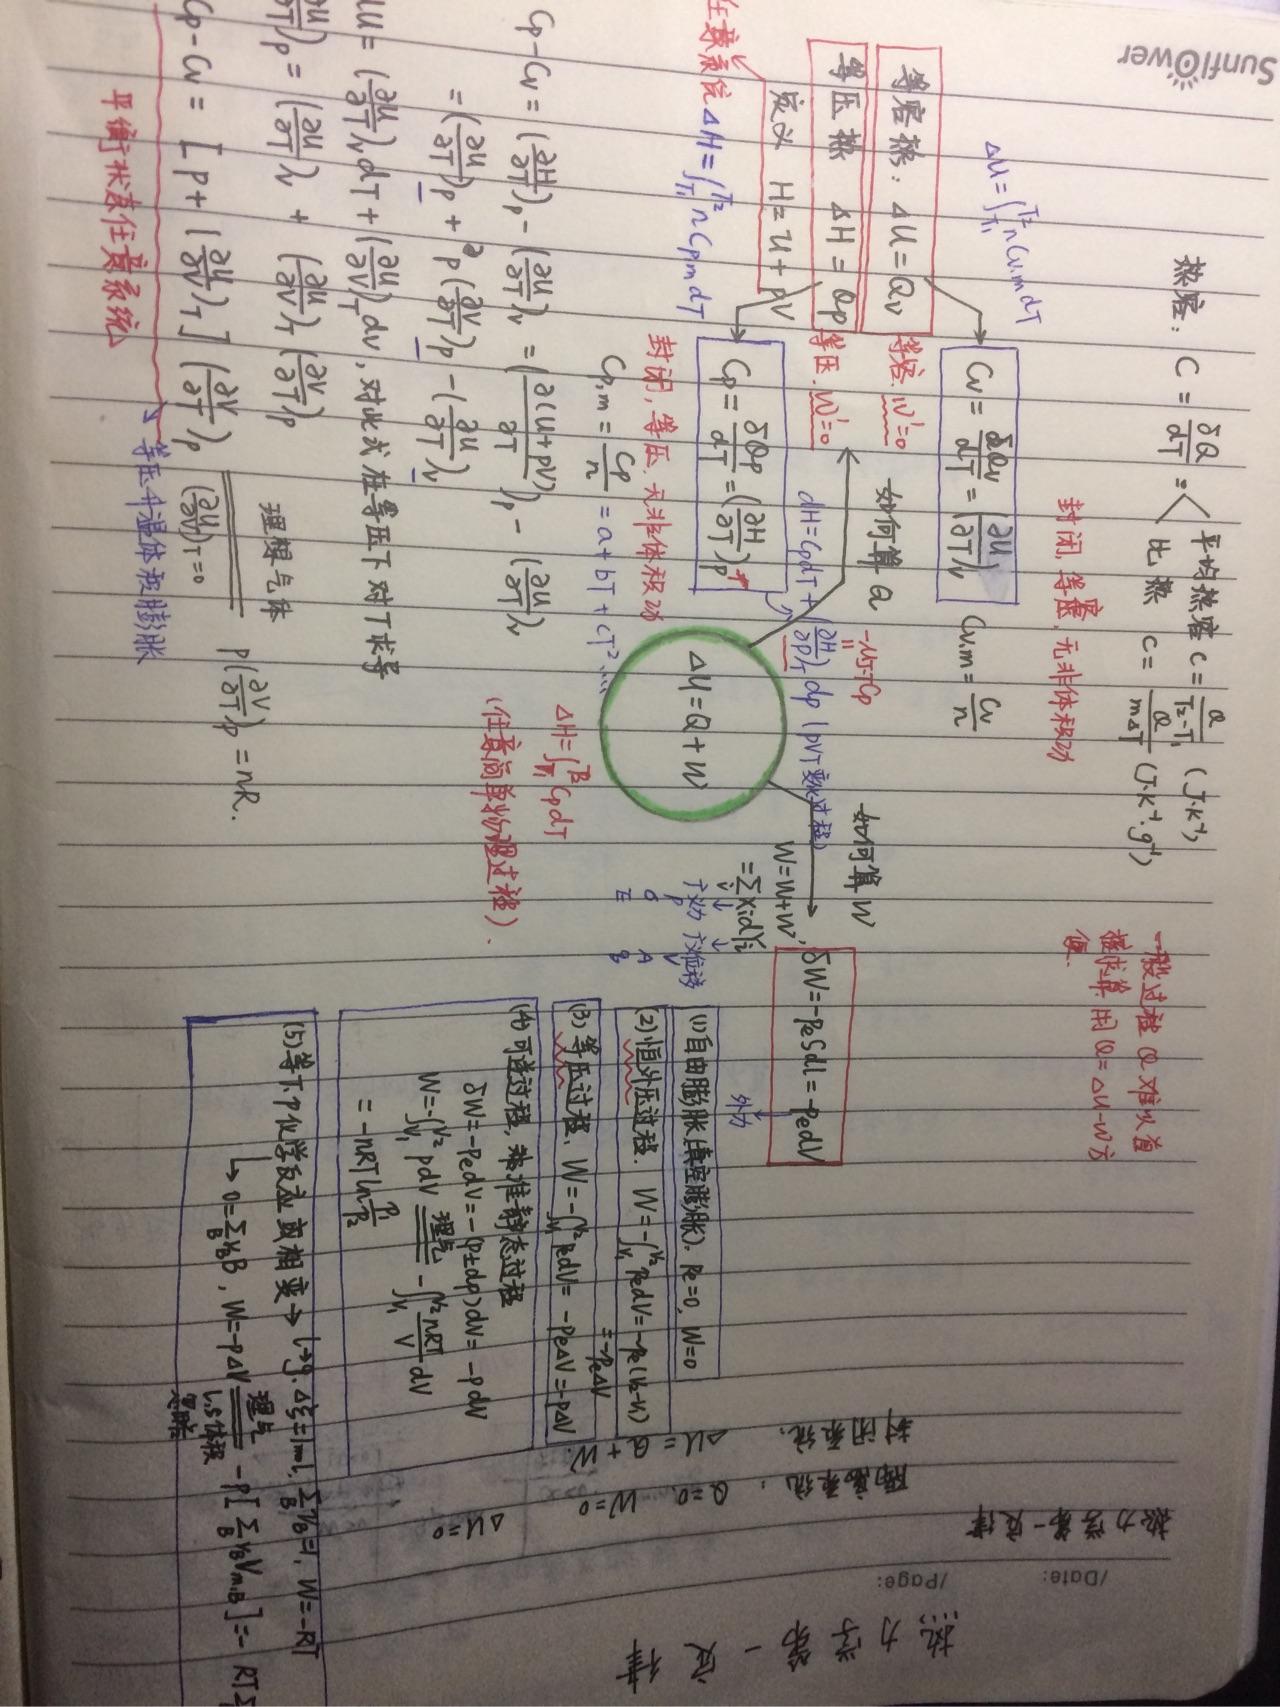 Sunflower
/Date:
/Page:
热力学第一定律
热力学第一定律
隔离系统: Q=0, W=0 ΔU=0
封闭系统: ΔU = Q + W
热容: C = δQ/dT = < 平均热容 C = Q/(T₂-T₁) (J·K⁻¹)
比热 C = Q/(mΔT) (J·K⁻¹·g⁻¹)
一般过程 Q 难以直接求算, 用 Q=ΔU-W 方便.
封闭, 等容, 无非体积功
ΔU=∫_{T₁}^{T₂} nCv,m dT
Cv = δQv/dT = (∂U/∂T)v
Cv,m = Cv/n
等容热: ΔU = Qv
等容. W'=0
等压热 ΔH = Qp
等压. W'=0
定义 H = U + pV
任意系统
ΔH=∫_{T₁}^{T₂} nCp,m dT
如何算 Q
dH=CpdT + (∂H/∂p)T dp (pVT变化过程)
-μJ-T Cp
Cp = δQp/dT = (∂H/∂T)p
封闭, 等压, 无非体积功
Cp,m = Cp/n = a + bT + cT² ....
ΔU = Q + W
ΔH=∫_{T₁}^{T₂} CpdT
(任意简单物理过程).
如何算 W
W=W+W'
=∑XidYi
广义力 广义位移
p V
σ A
E B
δW=-pₑSdl=-pₑdV
外力
(1) 自由膨胀(真空膨胀). pₑ=0, W=0
(2) 恒外压过程. W=-∫_{V₁}^{V₂} pₑdV=-pₑ(V₂-V₁)
=-pₑΔV
(3) 等压过程: W=-∫_{V₁}^{V₂} pₑdV = -pₑΔV=-pΔV
(4) 可逆过程, 准静态过程
δW=-pₑdV=-(p±dp)dV=-pdV
W=-∫_{V₁}^{V₂} pdV 理气 -∫_{V₁}^{V₂} nRT/V dV
= -nRT ln p₁/p₂
(5) 等T.p化学反应或相变→ l→g. Δξ=1mol, ∑νB=1, W=-RT
↳ 0=∑νBB, W=-pΔV 理气 l,s体积忽略 -p[∑νBVm,B]=- RT∑
Cp-Cv = (∂H/∂T)p - (∂U/∂T)v = (∂(U+pV)/∂T)p - (∂U/∂T)v
= (∂U/∂T)p + p(∂V/∂T)p - (∂U/∂T)v
dU = (∂U/∂T)v dT + (∂U/∂V)T dV, 对此式在等压下对T求导
(∂U/∂T)p = (∂U/∂T)v + (∂U/∂V)T (∂V/∂T)p
Cp-Cv = [p + (∂U/∂V)T] (∂V/∂T)p 理想气体 (∂U/∂V)T=0 p(∂V/∂T)p = nR.
平衡状态任意系统
等压升温体积膨胀